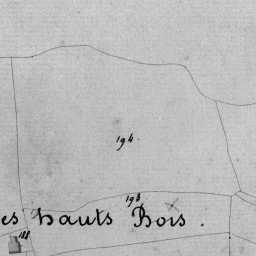 194.
193
es hauts Bois.
188